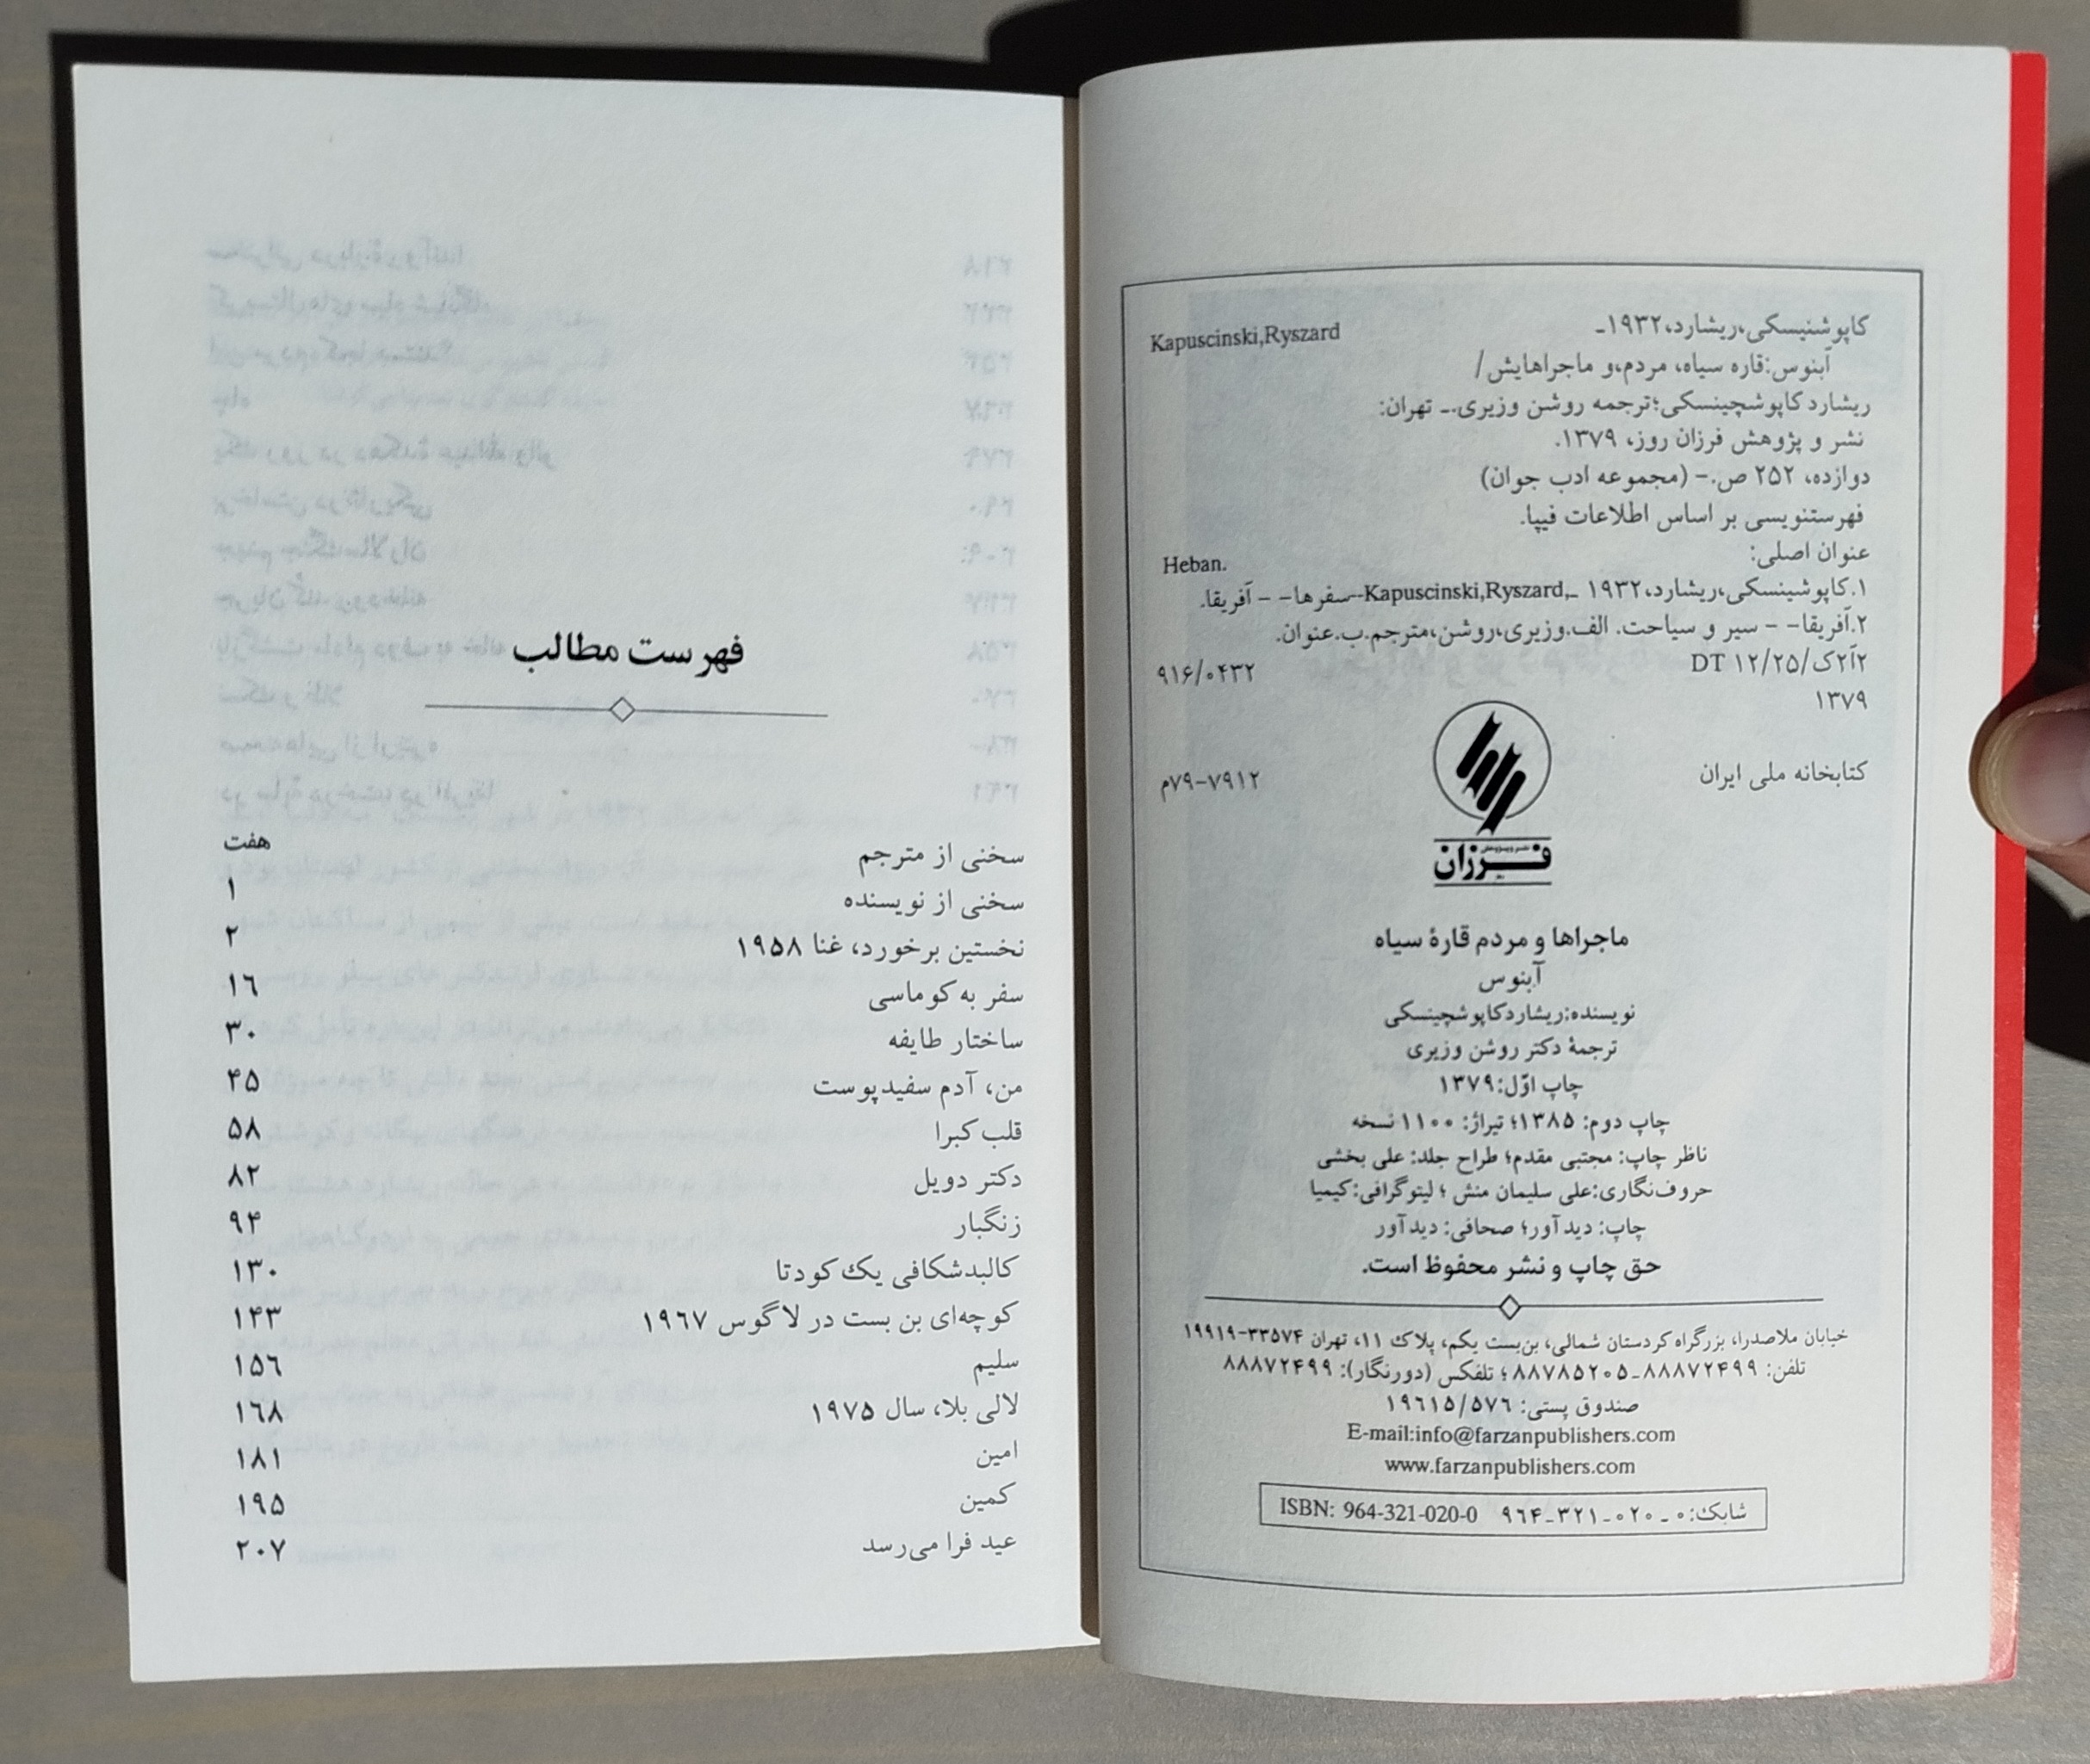 کاپوشنیسکی،ریشارد،۱۹۳۲ـ Kapuscinski,Ryszard
آبنوس:قاره سیاه، مردم،و ماجراهایش/
ریشارد کاپوشچینسکی؛ترجمه روشن وزیری.ـ تهران:
نشر و پژوهش فرزان روز، ۱۳۷۹.
دوازده، ۲۵۲ ص.- (مجموعه ادب جوان)
فهرستنویسی بر اساس اطلاعات فیپا.
عنوان اصلی: Heban.
۱.کاپوشینسکی،ریشارد،۱۹۳۲ ـ Kapuscinski,Ryszard,--سفرها- - آفریقا.
۲.آفریقا- - سیر و سیاحت. الف.وزیری،روشن،مترجم.ب.عنوان.
۲آ۲ک/۲۵/۱۲ DT ۹۱۶/۰۴۳۲
۱۳۷۹
کتابخانه ملی ایران ۷۹-۷۹۱۲م
نشر و پژوهش
فرزان
ماجراها و مردم قارهٔ سیاه
آبنوس
نویسنده:ریشاردکاپوشچینسکی
ترجمهٔ دکتر روشن وزیری
چاپ اوّل:۱۳۷۹
چاپ دوم: ۱۳۸۵؛ تیراژ: ۱۱۰۰ نسخه
ناظر چاپ: مجتبی مقدم؛ طراح جلد: علی بخشی
حروف‌نگاری:علی سلیمان منش ؛ لیتوگرافی:کیمیا
چاپ: دیدآور؛ صحافی: دیدآور
حق چاپ و نشر محفوظ است.
خیابان ملاصدرا، بزرگراه کردستان شمالی، بن‌بست یکم، پلاک ۱۱، تهران ۳۳۵۷۴-۱۹۹۱۹
تلفن: ۸۸۸۷۲۴۹۹ـ۸۸۷۸۵۲۰۵؛ تلفکس (دورنگار): ۸۸۸۷۲۴۹۹
صندوق پستی: ۱۹۶۱۵/۵۷۶
E-mail:info@farzanpublishers.com
www.farzanpublishers.com
شابک: ۰ ـ ۰۲۰ـ ۳۲۱ـ۹۶۴ ISBN: 964-321-020-0
فهرست مطالب
سخنی از مترجم هفت
سخنی از نویسنده ۱
نخستین برخورد، غنا ۱۹۵۸ ۲
سفر به کوماسی ۱۶
ساختار طایفه ۳۰
من، آدم سفیدپوست ۴۵
قلب کبرا ۵۸
دکتر دویل ۸۲
زنگبار ۹۴
کالبدشکافی یک کودتا ۱۳۰
کوچه‌ای بن بست در لاگوس ۱۹۶۷ ۱۴۳
سلیم ۱۵۶
لالی بلا، سال ۱۹۷۵ ۱۶۸
امین ۱۸۱
کمین ۱۹۵
عید فرا می‌رسد ۲۰۷